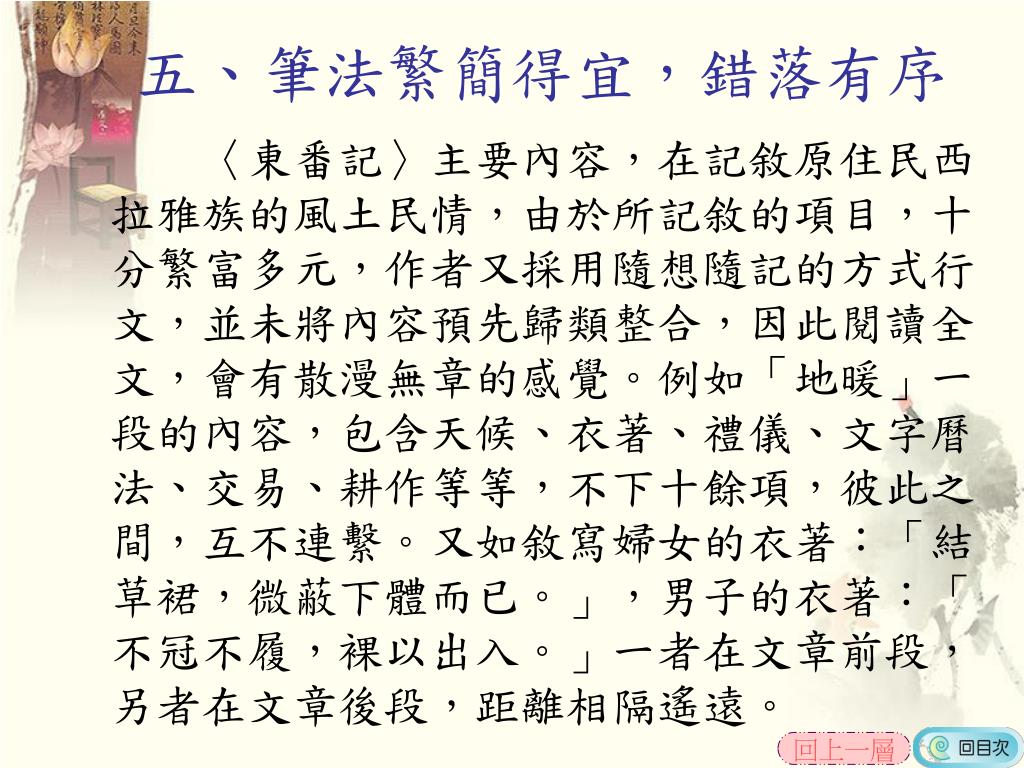 五、筆法繁簡得宜，錯落有序
〈東番記〉主要內容，在記敘原住民西
拉雅族的風土民情，由於所記敘的項目，十
分繁富多元，作者又採用隨想隨記的方式行
文，並未將內容預先歸類整合，因此閱讀全
文，會有散漫無章的感覺。例如「地暖」一
段的內容，包含天候、衣著、禮儀、文字曆
法、交易、耕作等等，不下十餘項，彼此之
間，互不連繫。又如敘寫婦女的衣著：「結
草裙，微蔽下體而已。」，男子的衣著：「
不冠不履，裸以出入。」一者在文章前段，
另者在文章後段，距離相隔遙遠。
回上一層
回目次